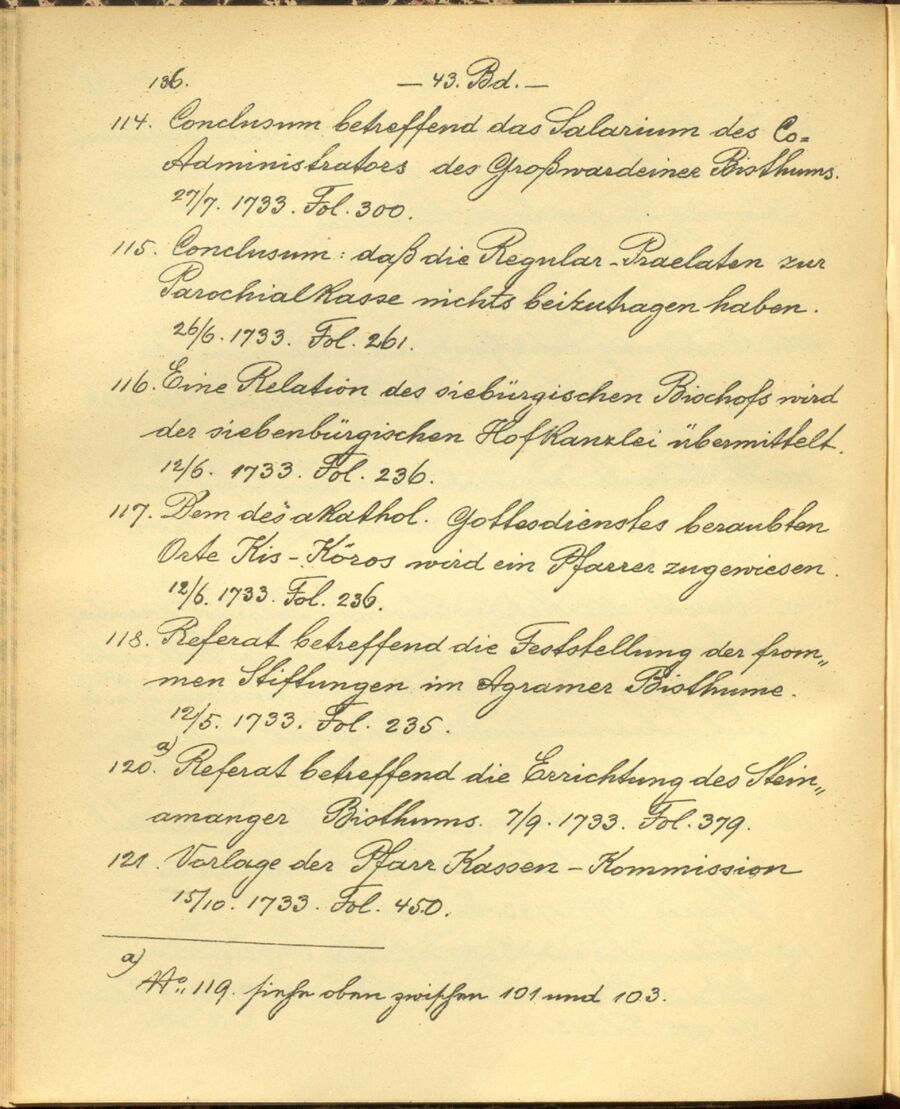 136. — 43. Bd. —
114. Conclusum betreffend das Salarium des Co=
Administrators des Großwardeiner Bisthums.
27/7. 1733. Fol. 300.
115. Conclusum: daß die Regular-Praelaten zur
Parochialkasse nichts beizutragen haben.
26/6. 1733. Fol. 261.
116. Eine Relation des siebürgischen Bischofs wird
der siebenbürgischen Hofkanzlei übermittelt.
12/6. 1733. Fol. 236.
117. Dem des akathol. Gottesdienstes beraubten
Orte Kis-Köros wird ein Pfarrer zugewiesen.
12/6. 1733. Fol. 236.
118. Referat betreffend die Feststellung der from„
men Stiftungen im Agramer Bisthume.
12/5. 1733. Fol. 235.
120. a) Referat betreffend die Errichtung des Stein„
amanger Bisthums. 7/9. 1733. Fol. 379.
121. Vorlage der Pfarr Kassen-Kommission
15/10. 1733. Fol. 450.
a)
No. 119. siehe oben zwischen 101 und 103.